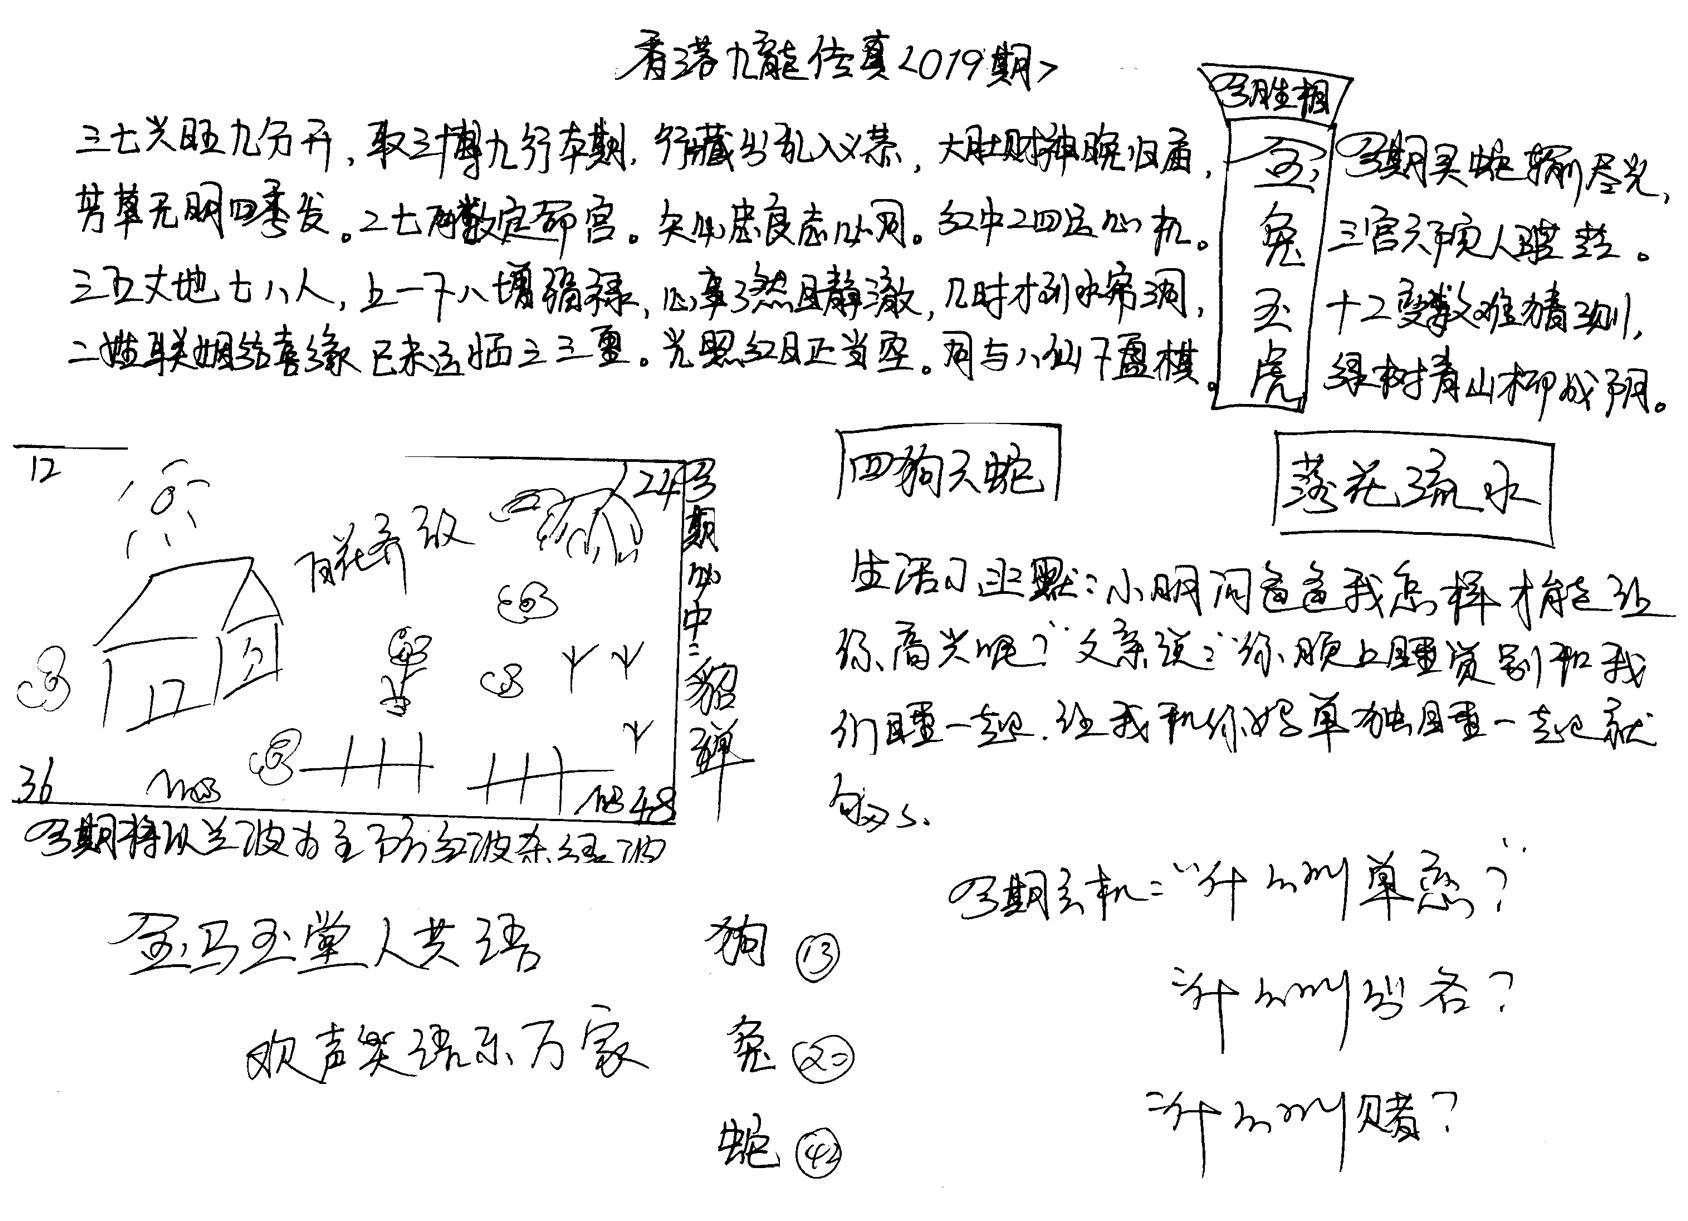 香港九龍传真<019期>
今期生相
三七兴旺九分开，取三博九行本期，行藏出乱入义荣，大肚财神晚归店，
芳草无明四季发。二七两数定命宫。夹心忠良志心同。红中二四运心机。
三五丈地七八人，上一下八增福禄，心事了然且静澈，几时才到水帘洞，
二姓联姻结喜缘 已未运
光照红日正当空。同与八仙下盘棋。
金
兔
玉
虎
今期买蛇输尽光，
三宫六
十二变数难猜测，
绿树青山柳成阴。
12
24
百花齐放
36
48
今期必中：貂蝉
今期特以兰波为主下防红波杀绿波
四狗天蛇
落花流水
生活小幽默：小明问爸爸我怎样才能让
你高兴呢？"父亲说："你晚上睡觉别和我
们睡一起.让我和你妈单独睡一起就
够了.
金马玉堂人共语
欢声笑语乐万家
狗 13
兔 22
蛇 42
今期玄机："什么叫单恋？"
"什么叫出名？
"什么叫赌？